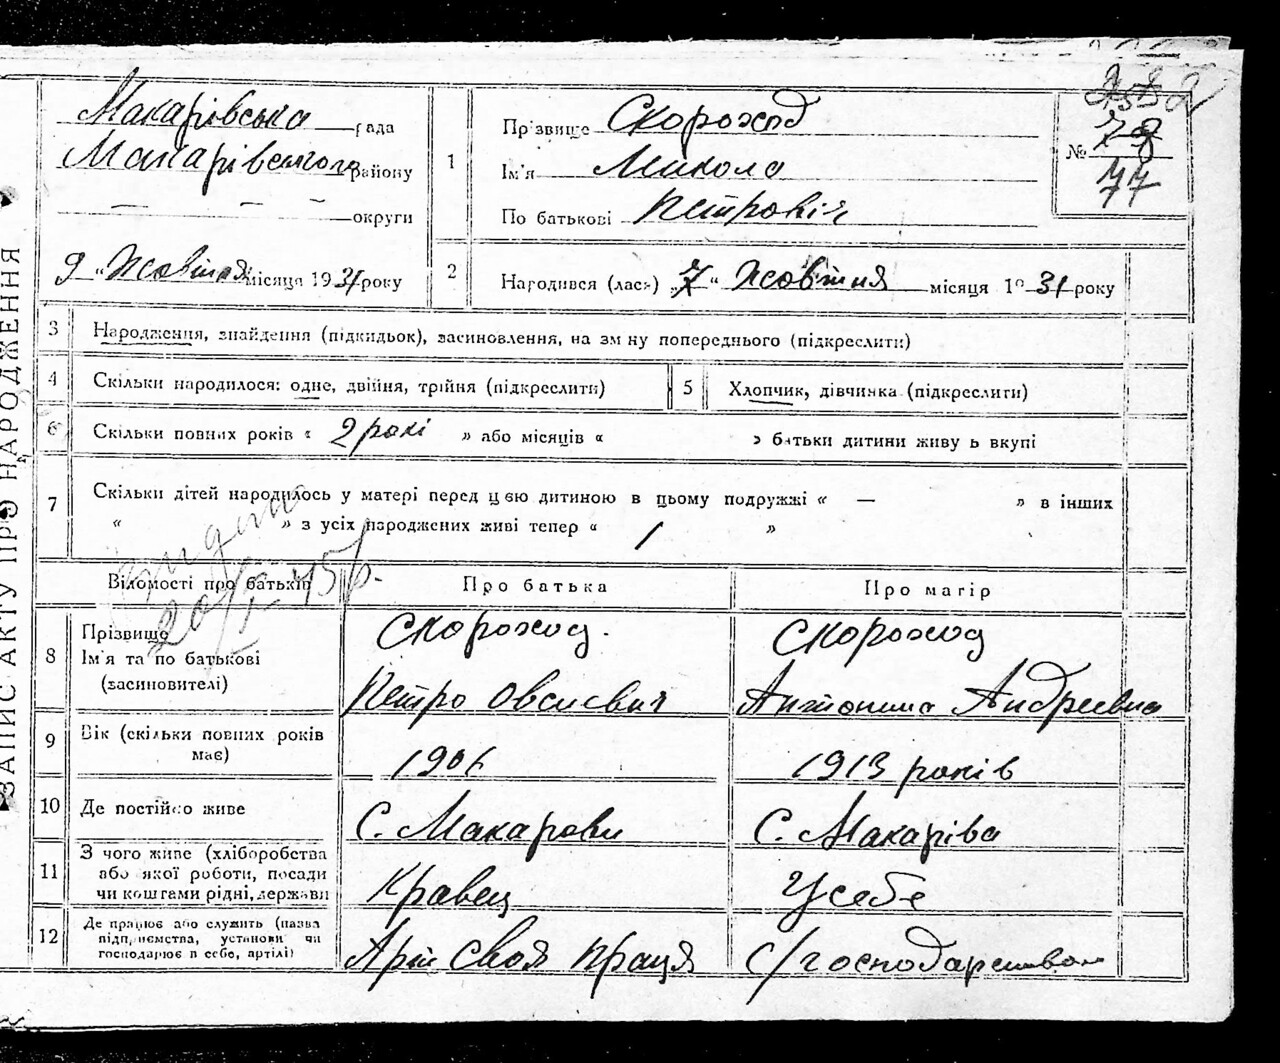 ЗАПИС АКТУ ПРО НАРОДЖЕННЯ
Макарівська рада
Макарівського району
— — — округи
9 „Жовтня місяця 1931 року
1
Прізвище Скороход
Ім'я Микола
По батькові Петровіч
№ 78
77
2
Народився (лася) „7“ Жовтня місяця 1931 року
3 Народження, знайдення (підкидьок), засиновлення, на зміну попереднього (підкреслити)
4 Скільки народилося: одне, двійня, трійня (підкреслити)
5 Хлопчик, дівчинка (підкреслити)
6 Скільки повних років « 2 рокі » або місяців « » батьки дитини живуть вкупі
7 Скільки дітей народилось у матері перед цею дитиною в цьому подружжі « — » в інших
« » з усіх народжених живі тепер « 1 »
20/I-45 р.
Відомості про батьків
Про батька
Про матір
8 Прізвище
Ім'я та по батькові
(засиновителі)
Скороход.
Петро Овсиевич
Скороход
Антонина Андреевна
9 Вік (скільки повних років
має)
1906
1913 років
10 Де постійно живе
С. Макарови
С. Макаріва
11 З чого живе (хліборобства
або якої роботи, посади
чи коштами рідні, держави
Кравец
У себе
12 Де працює або служить (назва
підприємства, установи чи
господарює в себе, артілі)
своя праця
с/господарством